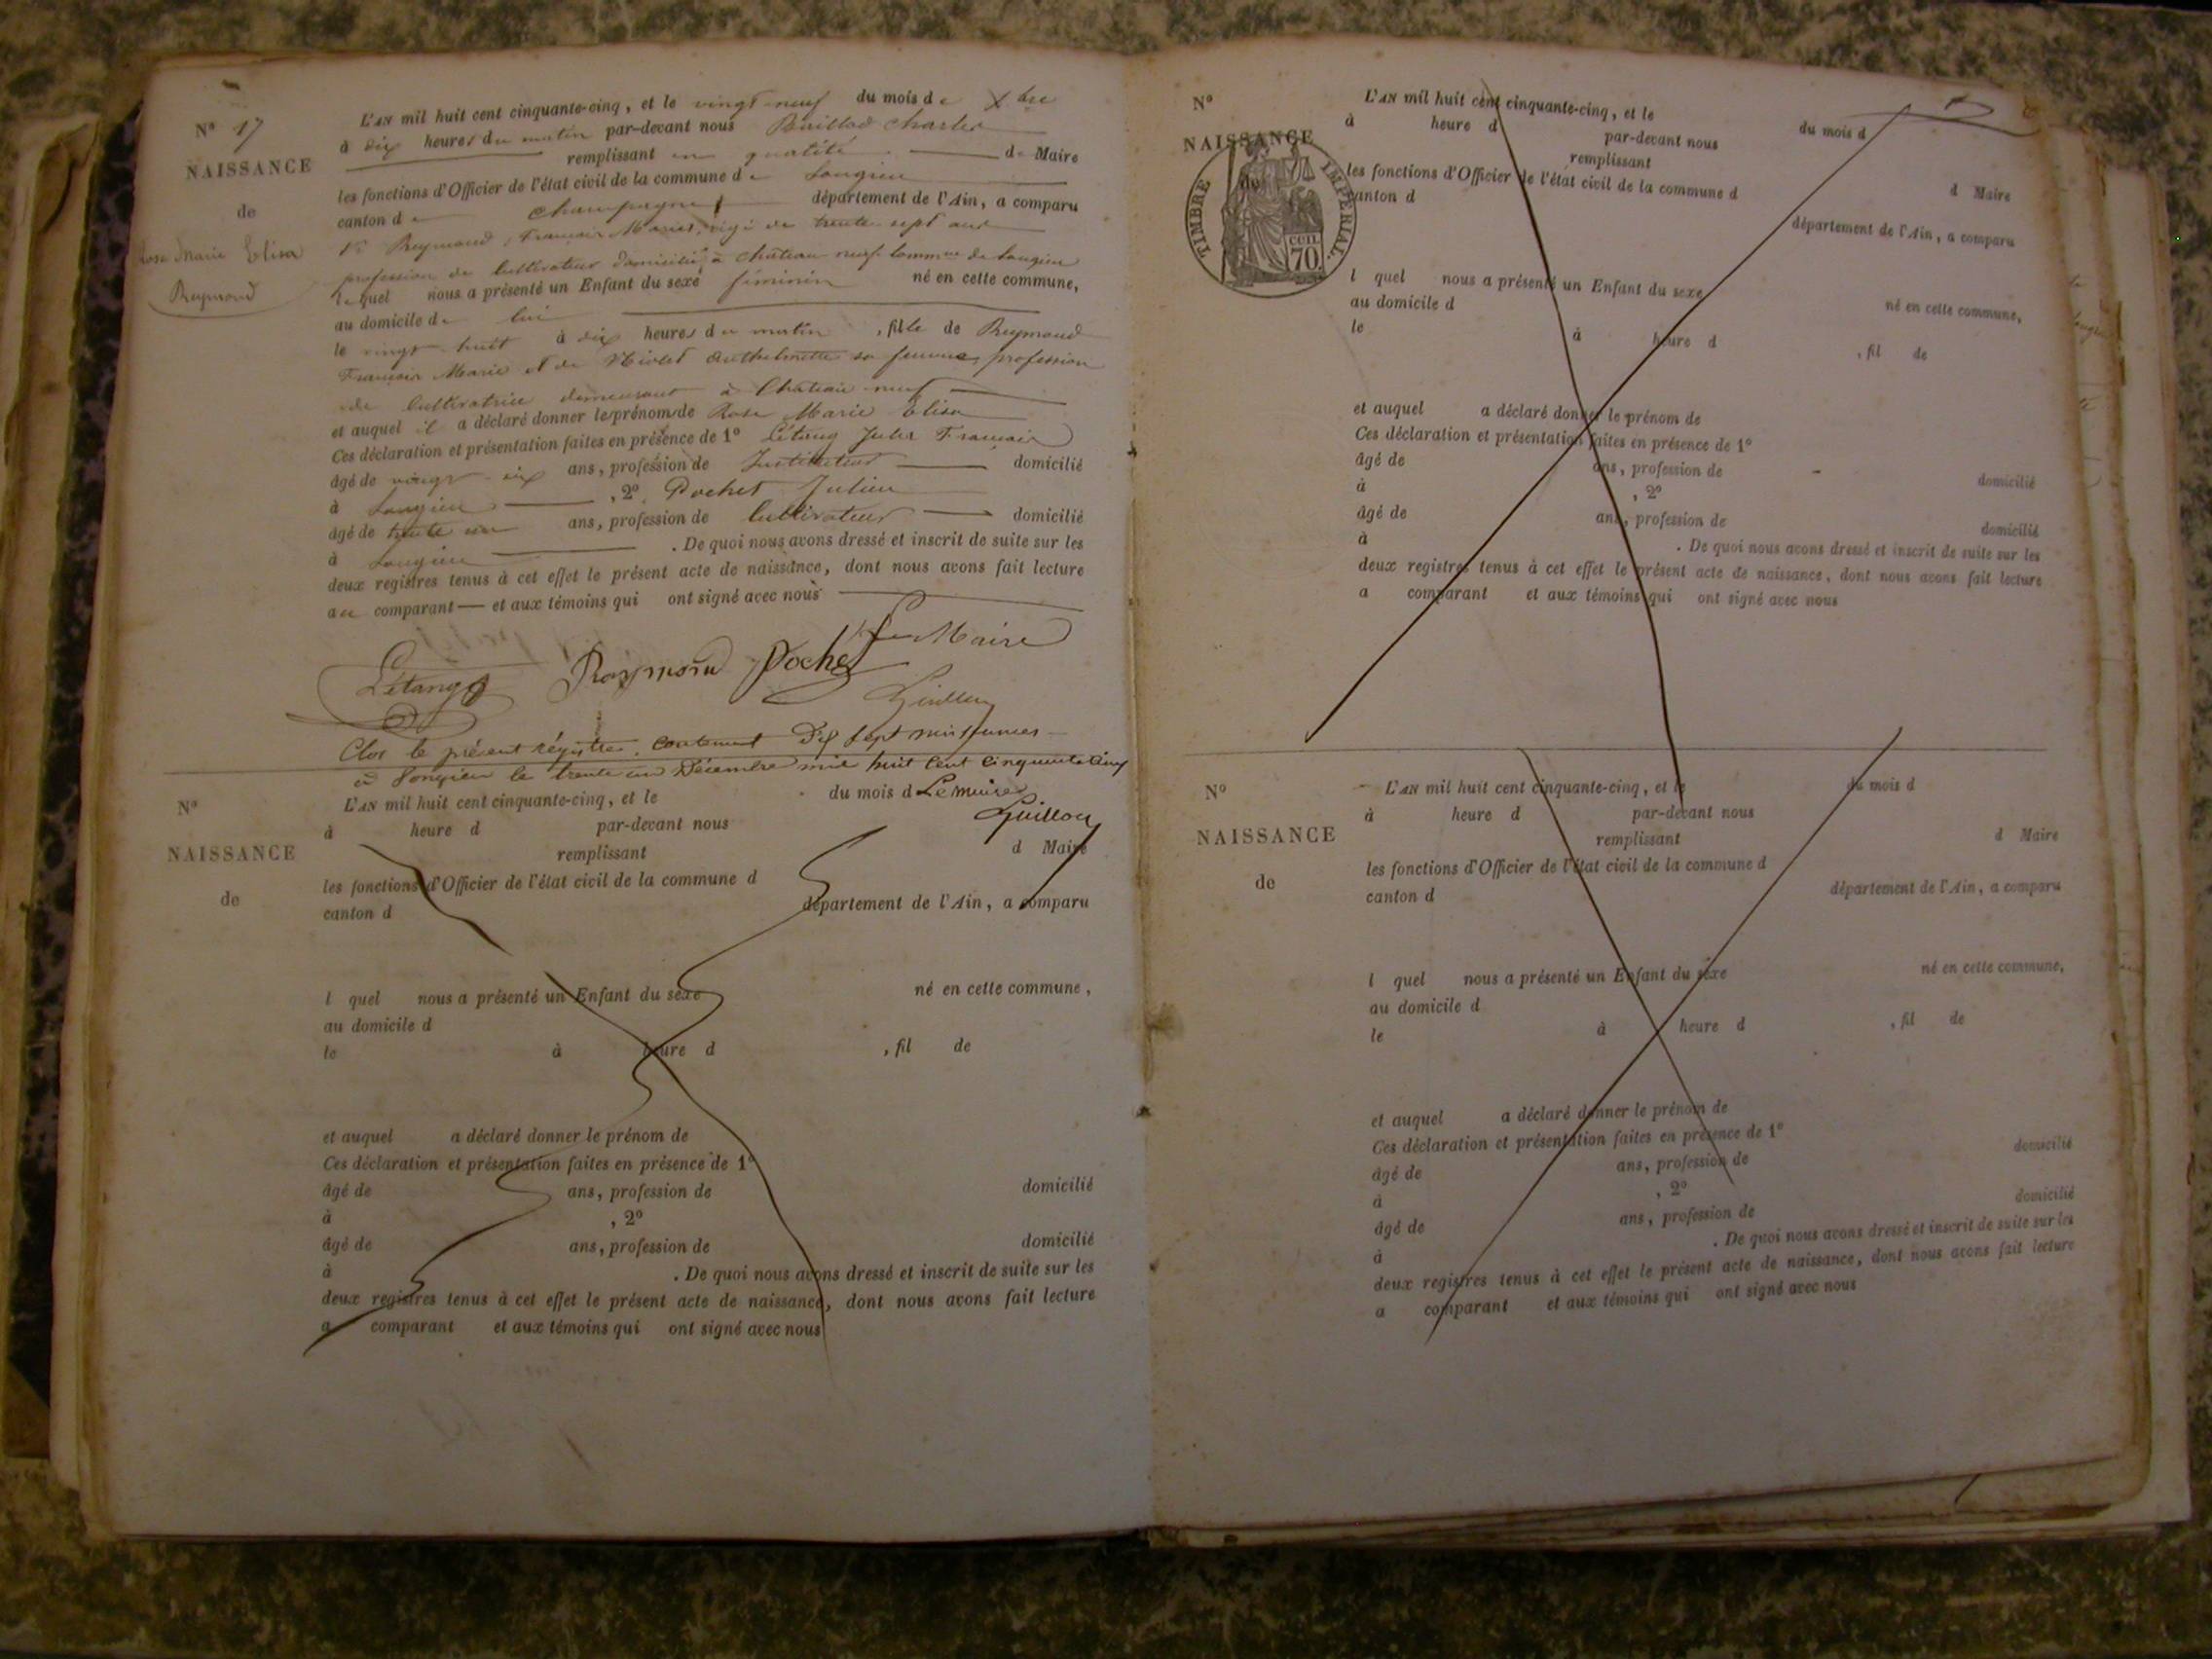 N° 17
NAISSANCE
de
Rose Marie Elisa
Reymond
L'AN mil huit cent cinquante-cinq, et le vingt neuf du mois de Xbre
à dix heures du matin par-devant nous Charles
remplissant en qualité de Maire
les fonctions d'Officier de l'état civil de la commune de Songieu
canton de Champagne département de l'Ain, a comparu
Reymond, François Marie, âgé de trente sept ans
profession de Cultivateur domicilié à Château neuf de Songieu
lequel nous a présenté un Enfant du sexe féminin né en cette commune,
au domicile de lui
le vingt huit à dix heures du matin, fille de Reymond
François Marie et de Anthelmette sa femme, profession
de Cultivatrice demeurant à Château neuf
et auquel il a déclaré donner les prénoms de Rose Marie Elisa
Ces déclaration et présentation faites en présence de 1° Létang Jules François
âgé de vingt six ans, profession de Instituteur domicilié
à Songieu, 2° Pochet Julien
âgé de trente un ans, profession de Cultivateur domicilié
à Songieu. De quoi nous avons dressé et inscrit de suite sur les
deux registres tenus à cet effet le présent acte de naissance, dont nous avons fait lecture
au comparant — et aux témoins qui ont signé avec nous
Le Maire
Létang Raymond Pochet
Guillon
Clos le présent régistre contenant Dix sept naissances
à Songieu le trente un Décembre mil huit cent cinquante cinq
Le maire
Guillon
N°
NAISSANCE
de
L'AN mil huit cent cinquante-cinq, et le du mois d
à heure d par-devant nous
remplissant d Maire
les fonctions d'Officier de l'état civil de la commune d
canton d département de l'Ain, a comparu
l quel nous a présenté un Enfant du sexe né en cette commune,
au domicile d
le à heure d , fil de
et auquel a déclaré donner le prénom de
Ces déclaration et présentation faites en présence de 1°
âgé de ans, profession de domicilié
à , 2°
âgé de ans, profession de domicilié
à . De quoi nous avons dressé et inscrit de suite sur les
deux registres tenus à cet effet le présent acte de naissance, dont nous avons fait lecture
a comparant et aux témoins qui ont signé avec nous
N°
NAISSANCE
de
TIMBRE IMPERIAL
70 cen.
L'AN mil huit cent cinquante-cinq, et le du mois d
à heure d par-devant nous
remplissant d Maire
les fonctions d'Officier de l'état civil de la commune d
canton d département de l'Ain, a comparu
l quel nous a présenté un Enfant du sexe né en cette commune,
au domicile d
le à heure d , fil de
et auquel a déclaré donner le prénom de
Ces déclaration et présentation faites en présence de 1°
âgé de ans, profession de domicilié
à , 2°
âgé de ans, profession de domicilié
à . De quoi nous avons dressé et inscrit de suite sur les
deux registres tenus à cet effet le présent acte de naissance, dont nous avons fait lecture
a comparant et aux témoins qui ont signé avec nous
N°
NAISSANCE
de
L'AN mil huit cent cinquante-cinq, et le du mois d
à heure d par-devant nous
remplissant d Maire
les fonctions d'Officier de l'état civil de la commune d
canton d département de l'Ain, a comparu
l quel nous a présenté un Enfant du sexe né en cette commune,
au domicile d
le à heure d , fil de
et auquel a déclaré donner le prénom de
Ces déclaration et présentation faites en présence de 1°
âgé de ans, profession de domicilié
à , 2°
âgé de ans, profession de domicilié
à . De quoi nous avons dressé et inscrit de suite sur les
deux registres tenus à cet effet le présent acte de naissance, dont nous avons fait lecture
a comparant et aux témoins qui ont signé avec nous